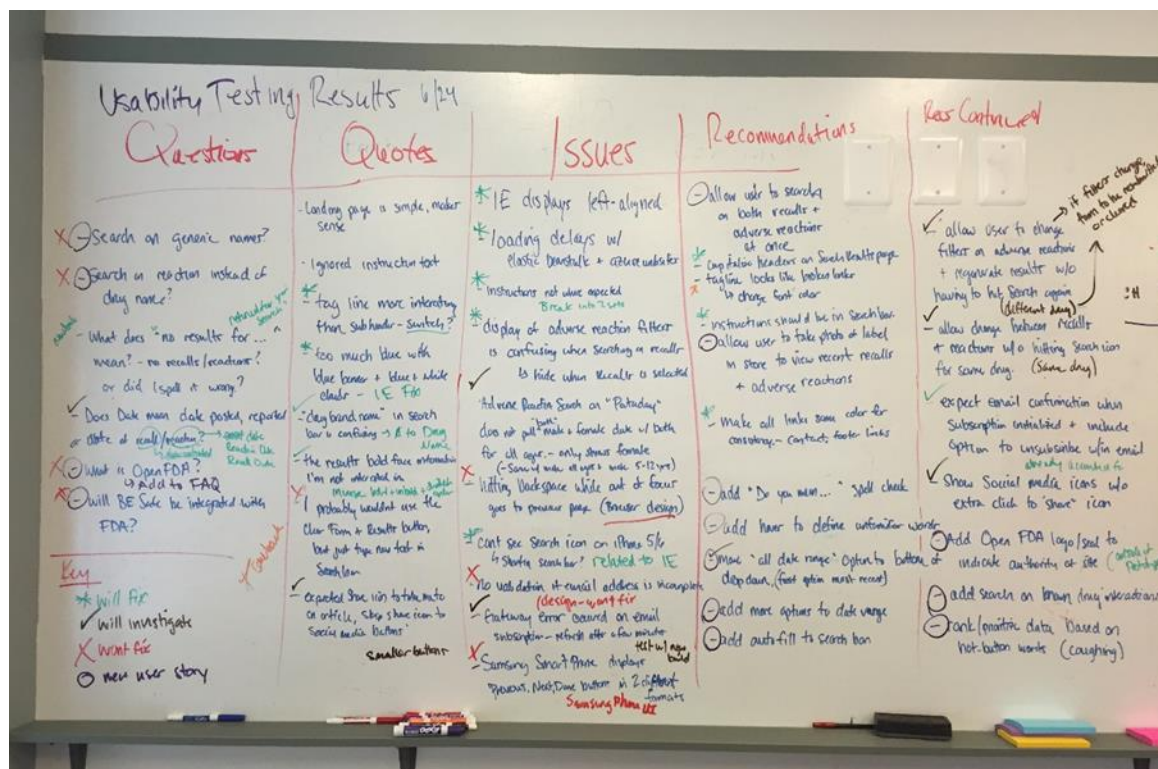 Usability Testing Results 6/24
Questions
X - Search on generic names?
X - Search on reaction instead of
drug name?
- What does "no results for...
returned for your
search
mean? - no recalls/reactions?
or did I spell it wrong?
✓ - Does Date mean date posted, reported
or date of recall/reaction?
Reaction Date
Recall Date
X - What is OpenFDA?
↳ Add to FAQ
X - Will BE Safe be integrated with
FDA?
Key
* will fix
✓ will investigate
X wont fix
O new user story
Quotes
- Landing page is simple, makes
sense
- Ignored instruction text
* tag line more interesting
than subheader - switch?
* too much blue with
blue banner + blue + white
- IE Fix
- "drug brand name" in search
bar is confusing → Δ to Drug
Name
- the results bold face information
I'm not interested in
X I probably wouldn't use the
Clear Form + Results button,
but just type new text in
Search bar
✓ - expected Share icon to take me to
an article,
share icon to
Social media buttons
smaller buttons
Issues
* IE displays left-aligned
* loading delays w/
elastic beanstalk + azure website
* Instructions not where expected
Break into 2
* display of adverse reaction filters
is confusing when searching on recalls
↳ hide when Recalls is selected
✓ "Adverse Reaction Search on "Pataday"
does not pull "both" male + female data w/ both
for all ages - only shows female
X - hitting backspace while out of focus
goes to previous page (Browser design)
* Can't see search icon on iPhone 5/6
↳ Shorten search bar? related to IE
X - No validation if email address is incomplete
(design - wont fix)
✓ - Gateway error occured on email
subscription - refresh after a few minutes
test w/ new
build
X - Samsung Smart Phone displays
Previous, Next, Done buttons in 2 different
formats
Samsung Phone UI
Recommendations
- allow user to search
on both recalls +
adverse reactions
at once
* - Capitalize headers on Search Results page
- tagline looks like broken link
↳ change font color
* - instructions should be in Search bar
- allow user to take photo of label
in store to view recent recalls
+ adverse reactions
* - make all links same color for
consistency - contact, footer links
- add "Do you mean..." spell check
- add hover to define unfamiliar words
- move "all date range" option to bottom of
dropdown (first option most recent)
- add more options to date range
- add autofill to search bar
Recs Continued
✓ - allow user to change
→ if filters change,
turn to be
or cleared
filters on adverse reactions
+ regenerate results w/o
having to hit Search again
(different drug)
✓ - allow change between recalls
+ reactions w/o hitting Search icon
for same drug. (same drug)
✓ - expect email confirmation when
Subscription initialized + include
option to unsubscribe w/in email
already accounted for
✓ - Show Social media icons w/o
extra click to "share" icon
- Add Open FDA logo/seal to
indicate authority of site
- add search on known drug interactions
- rank/prioritize data based on
hot-button words (coughing)